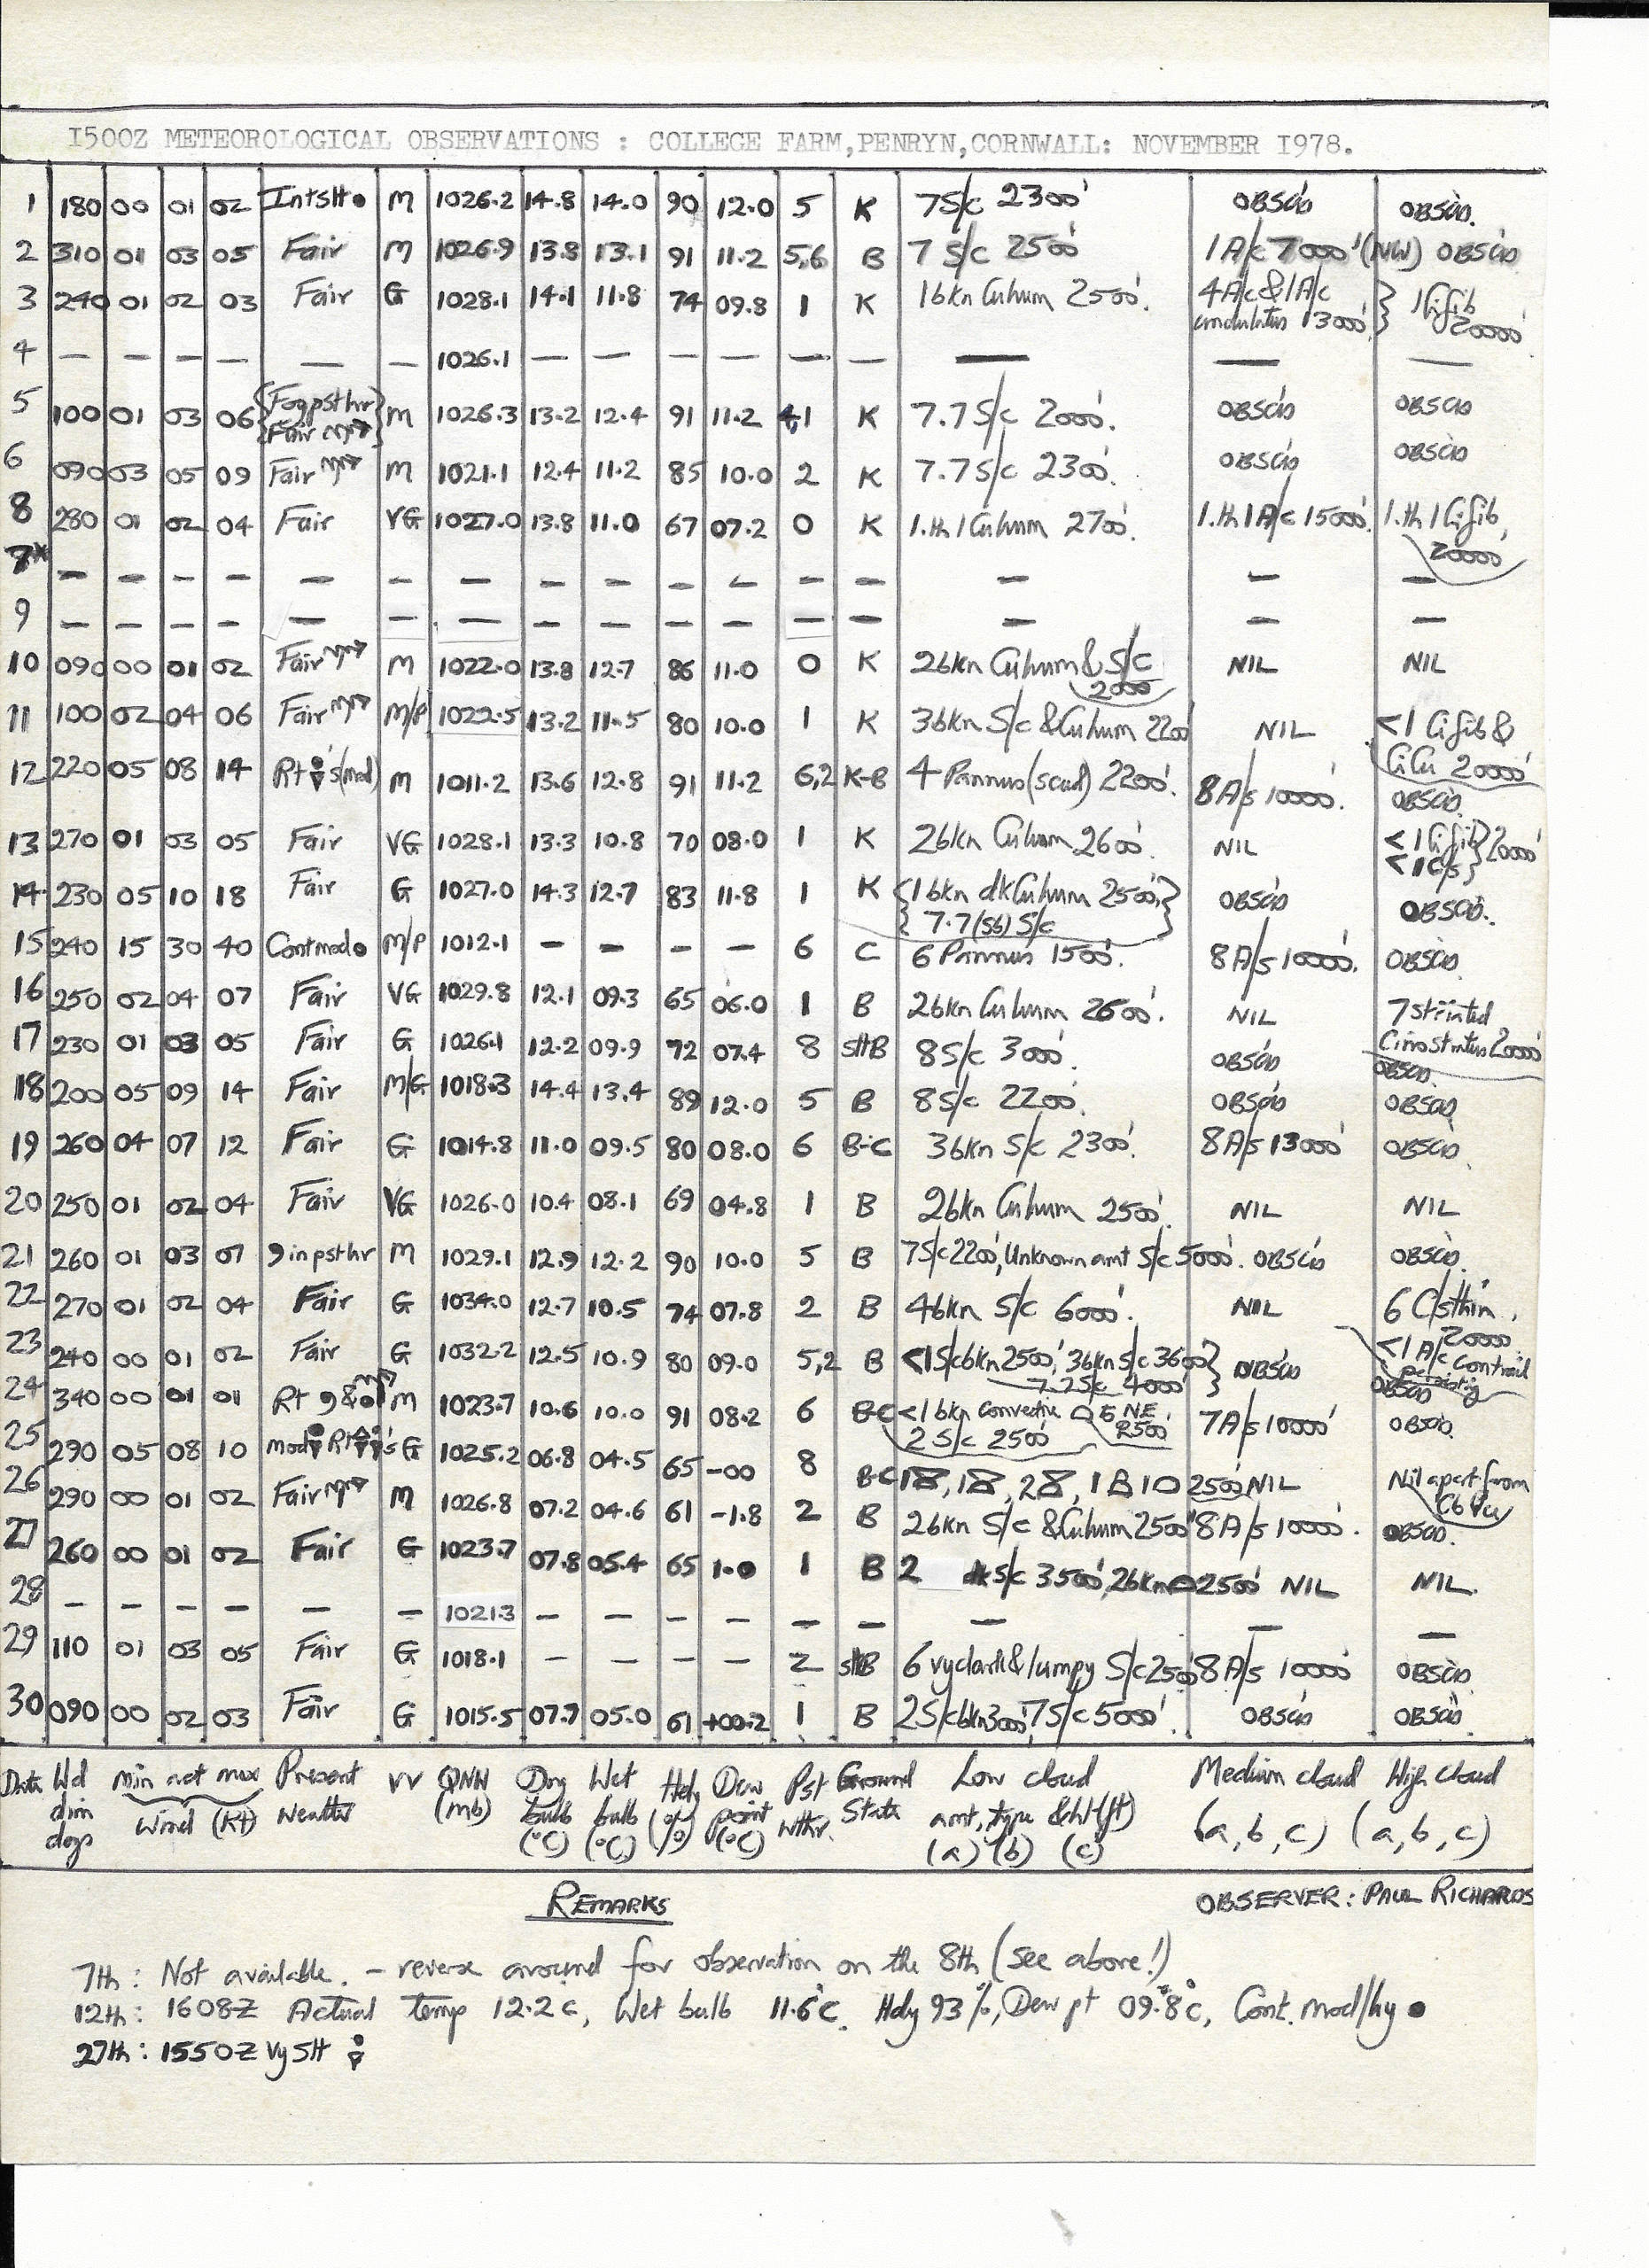 1500Z METEOROLOGICAL OBSERVATIONS : COLLEGE FARM,PENRYN,CORNWALL: NOVEMBER 1978.
1 180 00 01 02 IntSH● M 1026.2 14.8 14.0 90 12.0 5 K 7S/c 2300' OBSCD OBSCD.
2 310 01 03 05 Fair M 1026.9 13.8 13.1 91 11.2 5,6 B 7 S/c 2500' 1A/c 7000'(NW) OBSCD
3 240 01 02 03 Fair G 1028.1 14.1 11.8 74 09.8 1 K 1bkn Cuhum 2500'. 4A/c & 1A/c undulatus 13000' 1Cifib 20000'
4 — — — — — — 1026.1 — — — — — — — — —
5 100 01 03 06 {Fog psthr Fair} M 1026.3 13.2 12.4 91 11.2 4,1 K 7.7 S/c 2000'. OBSCD OBSCD
6 090 03 05 09 Fair M 1021.1 12.4 11.2 85 10.0 2 K 7.7 S/c 2300'. OBSCD OBSCD
8 280 01 02 04 Fair VG 1027.0 13.8 11.0 67 07.2 0 K 1.th 1Cuhum 2700'. 1.th 1A/c 15000'. 1.th 1Cifib, 20000'
7* — — — — — — — — — — — — — — — —
9 — — — — — — — — — — — — — — — —
10 090 00 01 02 Fair M 1022.0 13.8 12.7 86 11.0 0 K 2bkn Cuhum & S/c 2000' NIL NIL
11 100 02 04 06 Fair M/P 1022.5 13.2 11.5 80 10.0 1 K 3bkn S/c & Cuhum 2200' NIL <1 Cifib & CiCu 20000'
12 220 05 08 14 Rt 's(mod) M 1011.2 13.6 12.8 91 11.2 6,2 K-B 4 Pannus (scud) 2200'. 8A/s 10000'. OBSCD.
13 270 01 03 05 Fair VG 1028.1 13.3 10.8 70 08.0 1 K 2bkn Cuhum 2600'. NIL <1Cifib <1C/s } 20000'
14 230 05 10 18 Fair G 1027.0 14.3 12.7 83 11.8 1 K {1bkn dk Cuhum 2500', 7.7(S6) S/c} OBSCD OBSCD.
15 240 15 30 40 Contmod● M/P 1012.1 — — — — 6 C 6 Pannus 1500'. 8A/s 10000'. OBSCD
16 250 02 04 07 Fair VG 1029.8 12.1 09.3 65 06.0 1 B 2bkn Cuhum 2600'. NIL 7 striated Cirrostratus 20000'
17 230 01 03 05 Fair G 1026.1 12.2 09.9 72 07.4 8 sHB 8S/c 3000'. OBSCD OBSCD.
18 200 05 09 14 Fair M/G 1018.3 14.4 13.4 89 12.0 5 B 8S/c 2200'. OBSCD OBSCD
19 260 04 07 12 Fair G 1014.8 11.0 09.5 80 08.0 6 B-C 3bkn S/c 2300'. 8A/s 13000' OBSCD
20 250 01 02 04 Fair VG 1026.0 10.4 08.1 69 04.8 1 B 2bkn Cuhum 2500'. NIL NIL
21 260 01 03 07 9 in psthr M 1029.1 12.9 12.2 90 10.0 5 B 7S/c 2200', Unknown amt S/c 5000'. OBSCD OBSCD.
22 270 01 02 04 Fair G 1034.0 12.7 10.5 74 07.8 2 B 4bkn S/c 6000'. NIL 6 C/sthin, 20000'
23 240 00 01 02 Fair G 1032.2 12.5 10.9 80 09.0 5,2 B <1S/cbkn 2500', 3bkn S/c 3600' 7.2S/c 4000' } OBSCD <1 A/c contrail persisting
24 340 00 01 01 Rt 9 &● M 1023.7 10.6 10.0 91 08.2 6 B-C <1bkn convective to NE 2500' 2 S/c 2500' 7A/s 10000' OBSCD OBSCD.
25 290 05 08 10 mod Rt 's G 1025.2 06.8 04.5 65 -00 8 B-C 2500' NIL Nil apart from Cb Ci
26 290 00 01 02 Fair M 1026.8 07.2 04.6 61 -1.8 2 B 2bkn S/c & Cuhum 2500' 8A/s 10000'. OBSCD.
27 260 00 01 02 Fair G 1023.7 07.8 05.4 65 1.0 1 B 2 dkS/c 3500', 2bkn 2500' NIL NIL.
28 — — — — — — 1021.3 — — — — — — — — —
29 110 01 03 05 Fair G 1018.1 — — — — 2 sHB 6 vy dark & lumpy S/c 2500' 8A/s 10000' OBSCD
30 090 00 02 03 Fair G 1015.5 07.7 05.0 61 +00.2 1 B 2S/cbkn3000', 7S/c 5000'. OBSCD OBSCD.
Date Wd min act max Present VV QNH Dry Wet Hdy Dew Pst Ground Low cloud Medium cloud High cloud
dirn Wind (Kt) weather (mb) bulb bulb (%) point wthr. State amt, type & ht (ft) (a, b, c) (a, b, c)
degs (°C) (°C) (°C) (a) (b) (c)
REMARKS
OBSERVER: PAUL RICHARDS
7th: Not available. – reverse around for observation on the 8th (see above!)
12th: 1608Z Actual temp 12.2°c, Wet bulb 11.6°C. Hdy 93%, Dew pt 09.8°c, Cont. mod/hy ●
27th: 1550Z Vy SH